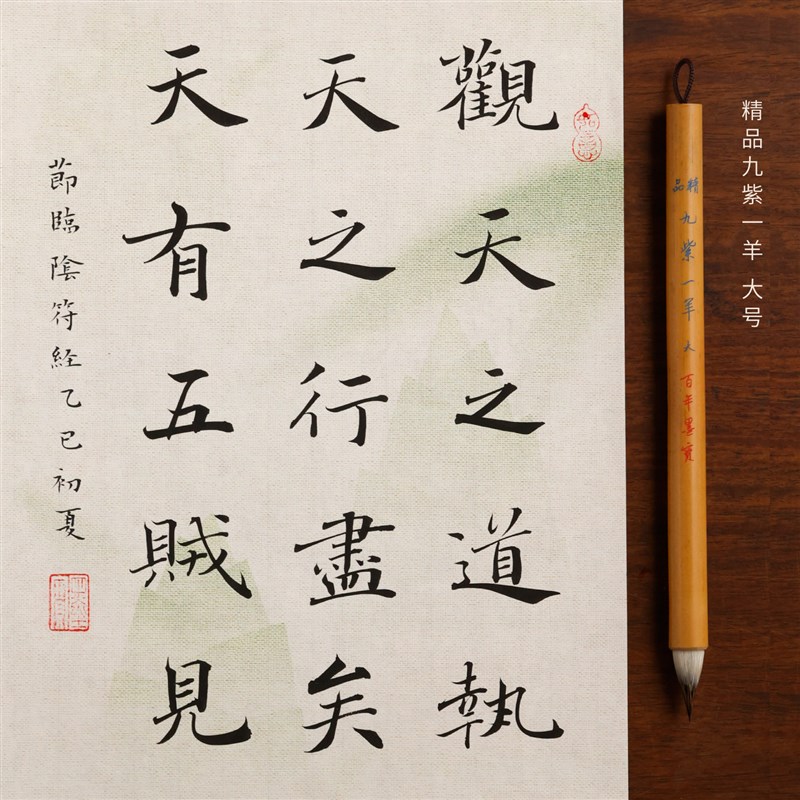 觀天之道執
天之行盡矣
天有五賊見
節臨陰符經乙巳初夏
精品九紫一羊 大号
精品 九紫一羊 大 百年墨寶